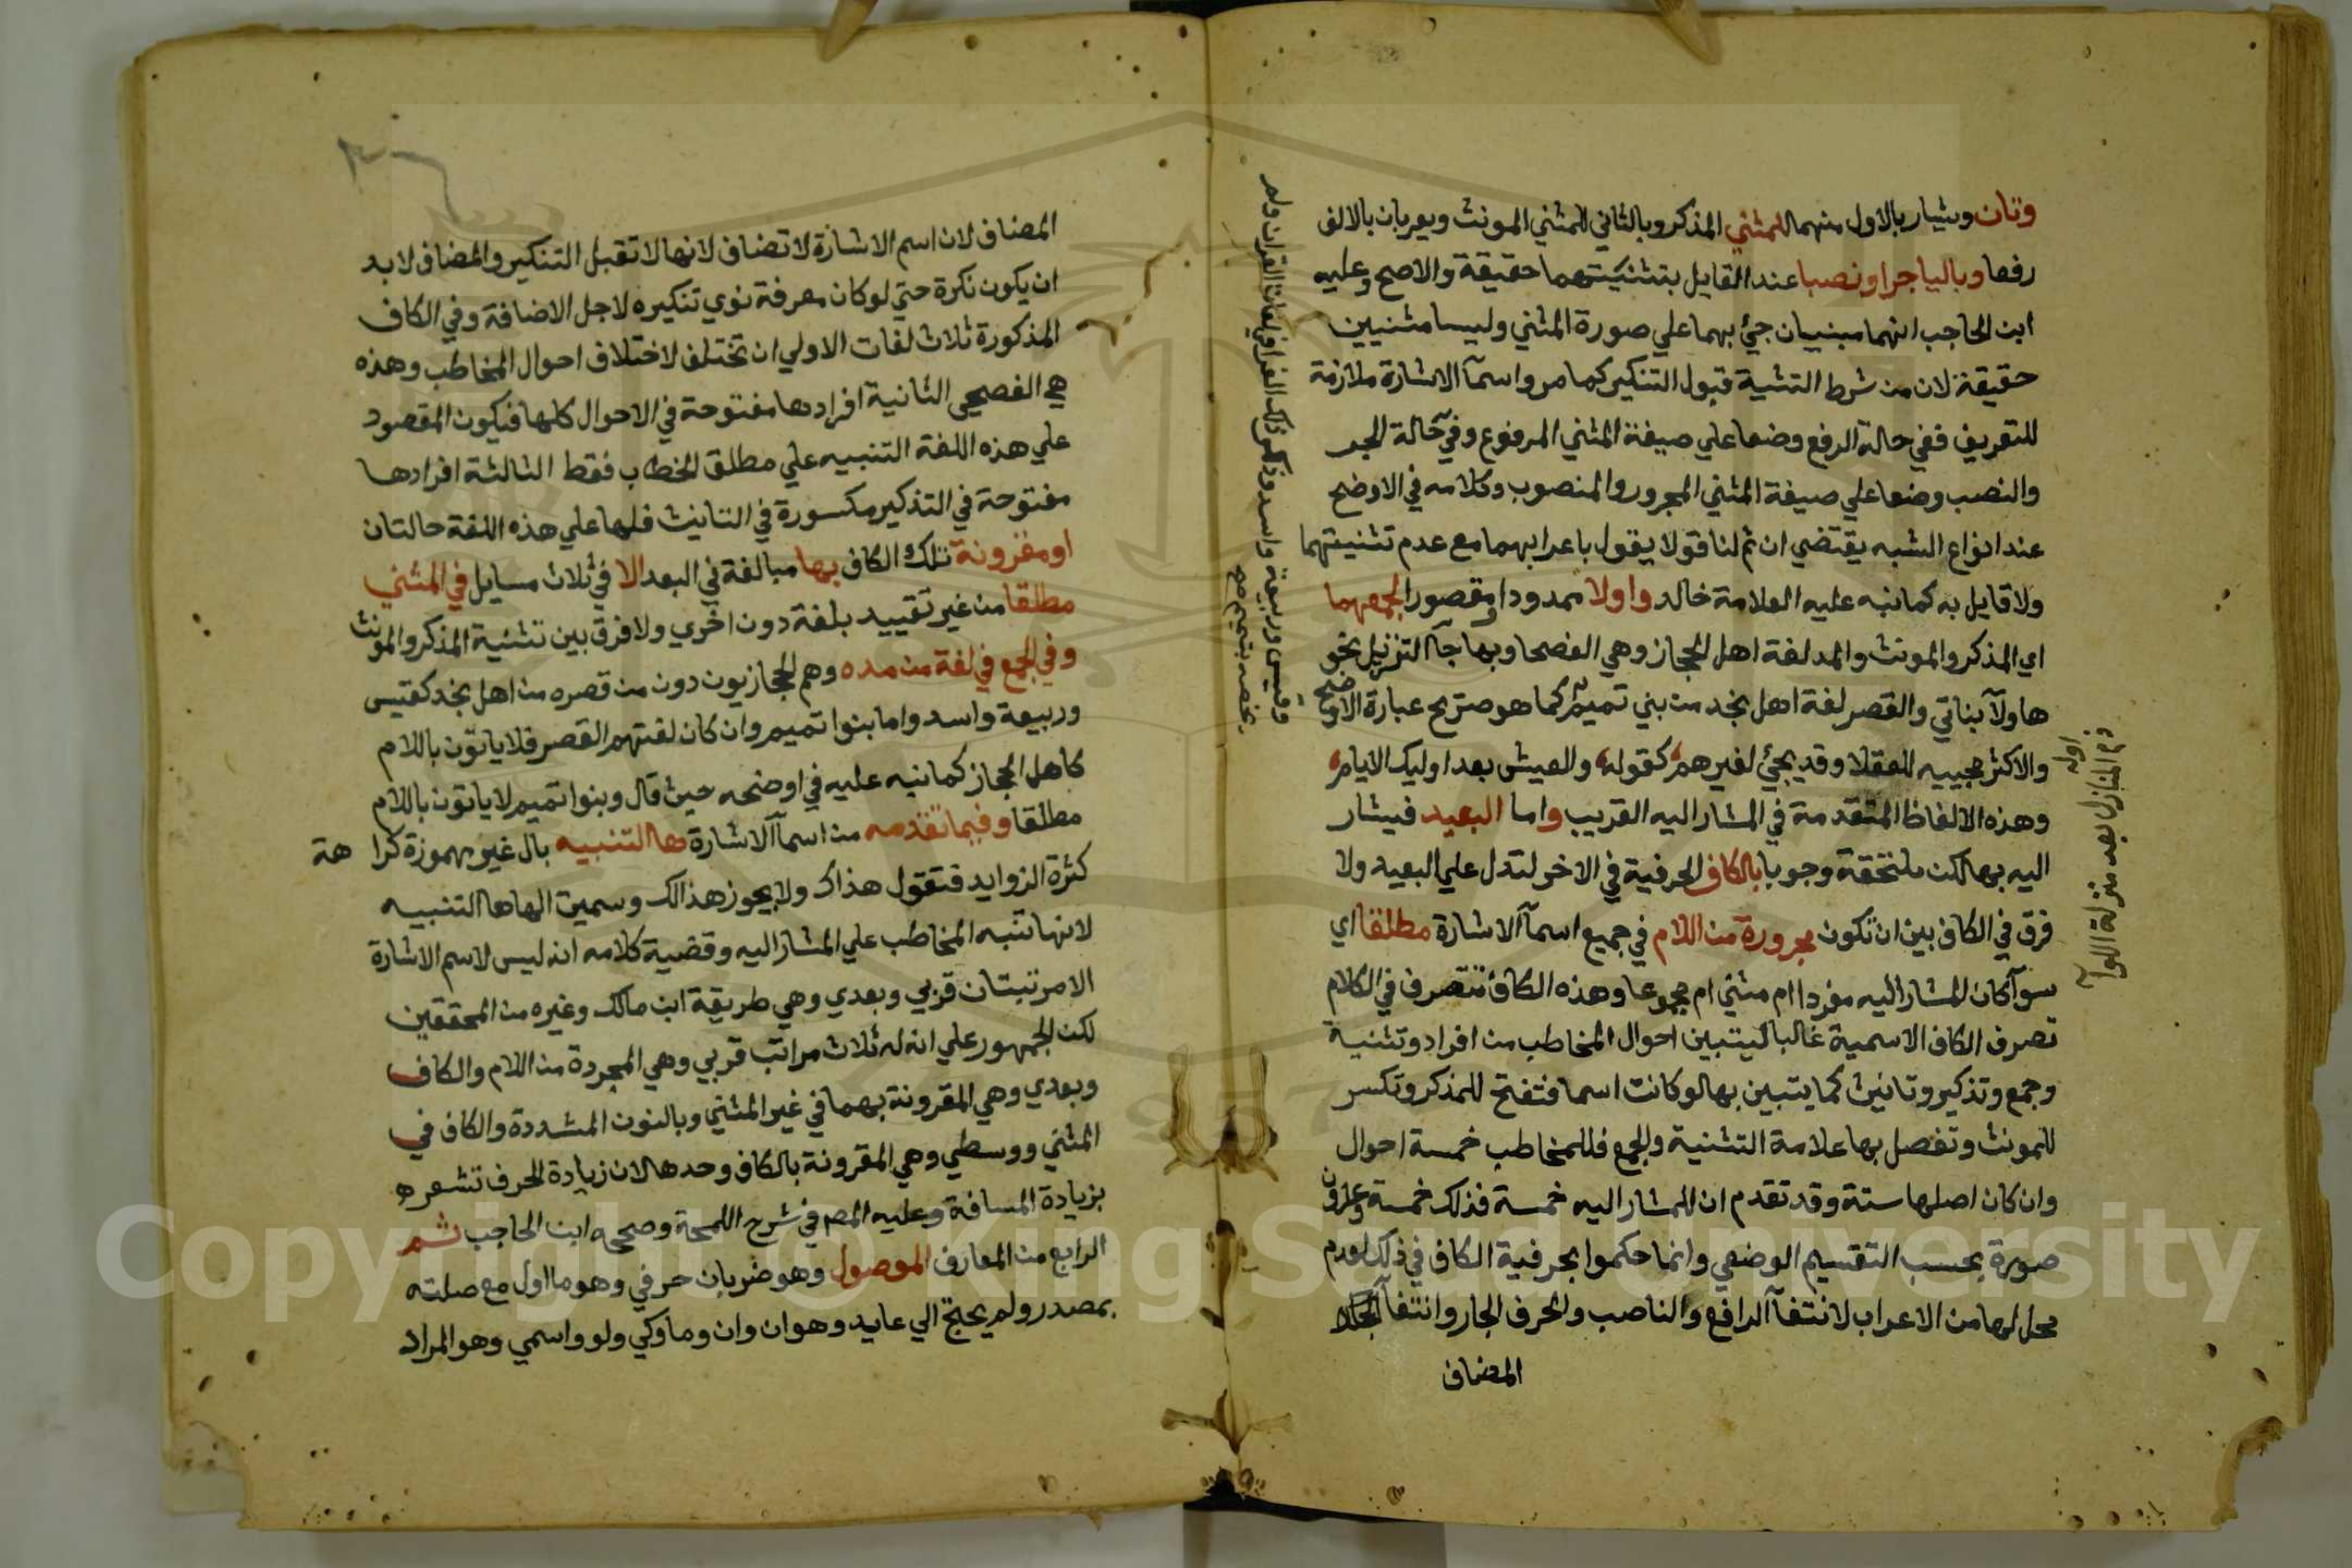 وتان ويشار بالاول منهما للمثني المذكر وبالثاني للمثني المونث ويعربان بالالف
رفعا وباليا جرا ونصبا عند القايل بتثنيتهما حقيقة والاصح وعليه
ابن الحاجب انهما مبنيان جيء بهما علي صورة المثني وليسا مثنيين
حقيقة لان من شرط التثنية قبول التنكير كما مر واسمآ الاشارة ملازمة
للتعريف ففي حالة الرفع وضعا علي صيغة المثني المرفوع وفي حالة الجر
والنصب وضعا علي صيغة المثني المجرور والمنصوب وكلامه في الاوضح
عند انواع الشبه يقتضي ان ثم لنا قولا يقول باعرابهما مع عدم تثنيتهما
ولا قايل به كما نبه عليه العلامة خالد واولا ممدودا ومقصورا لجمعهما
اي المذكر والمونث والمد لغة اهل الحجاز وهي الفصحا وبها جآ التنزيل نحو
هاولآ بناتي والقصر لغة اهل نجد من بني تميم كما هو صريح عبارة الاوضح
والاكثر مجييه للعقلا وقد يجئ لغيرهم كقوله والعيش بعد اوليك الايام
وهذه الالفاظ المتقدمة في المشار اليه القريب واما البعيد فيشار
اليه بها لكن ملتحقة وجوبا بالكاف الحرفية في الاخر لتدل علي البعيد ولا
فرق في الكاف بين ان تكون مجرورة من اللام في جميع اسمآ الاشارة مطلقا اي
سوآ كان المشار اليه مفردا ام مثني ام مجموعا وهذه الكاف تتصرف في الكلام
تصرف الكاف الاسمية غالبا ليتبين احوال المخاطب من افراد وتثنية
وجمع وتذكير وتانيث كما يتبين بها لو كانت اسما فتفتح للمذكر وتكسر
للمونث وتفصل بها علامة التثنية والجمع فللمخاطب خمسة احوال
وان كان اصلها ستة وقد تقدم ان للمشار اليه خمسة فذلك خمسة وعشرون
صورة بحسب التقسيم الوضعي وانما حكموا بحرفية الكاف في ذلك لعدم
محل لها من الاعراب لانتفآ الرافع والناصب والحرف الجار وانتفآ
المضاف
ذم المنازل بعد منزلة اللوا
اوله
وقيس وربيعة واسد وذكر ذلك الفرا في لغات القران ولم
يخصه بتميم صح
المضاف لان اسم الاشارة لا تضاف لانها لا تقبل التنكير والمضاف لابد
ان يكون نكرة حتي لو كان معرفة نوي تنكيره لاجل الاضافة وفي الكاف
المذكورة ثلاث لغات الاولي ان تختلف لاختلاف احوال المخاطب وهذه
هي الفصحي الثانية افرادها مفتوحة في الاحوال كلها فيكون المقصود
علي هذه اللغة التنبيه علي مطلق الخطاب فقط الثالثة افرادها
مفتوحة في التذكير مكسورة في التانيث فلها علي هذه اللغة حالتان
او مقرونة تلك الكاف بها مبالغة في البعد الا في ثلاث مسايل في المثني
مطلقا من غير تقييد بلغة دون اخري ولا فرق بين تثنية المذكر والمونث
وفي الجمع في لغة من مده وهم الحجازيون دون من قصره من اهل نجد كقيس
وربيعة واسد واما بنوا تميم وان كان لغتهم القصر فلا ياتون باللام
كاهل الحجاز كما نبه عليه في اوضحه حيث قال وبنوا تميم لا ياتون باللام
مطلقا وفيما تقدمه من اسمآ الاشارة ها التنبيه بال غير مهموزة كراهة
كثرة الزوايد فتقول هذاك ولا يجوز هذالك وسميت الها ها التنبيه
لانها تنبه المخاطب علي المشار اليه وقضية كلامه انه ليس لاسم الاشارة
الا مرتبتان قربي وبعدي وهي طريقة ابن مالك وغيره من المحققين
لكن الجمهور علي انه له ثلاث مراتب قربي وهي المجردة من اللام والكاف
وبعدي وهي المقرونة بهما في غير المثني وبالنون المشددة والكاف في
المثني ووسطي وهي المقرونة بالكاف وحدها لان زيادة الحرف تشعر
بزيادة المسافة وعليه المص في شرح اللمحة وصححه ابن الحاجب ثم
الرابع من المعارف الموصول وهو ضربان حرفي وهو ما اول مع صلته
بمصدر ولم يحتج الي عايد وهو ان وان وما وكي ولو واسمي وهو المراد
Copyright © King Saud University